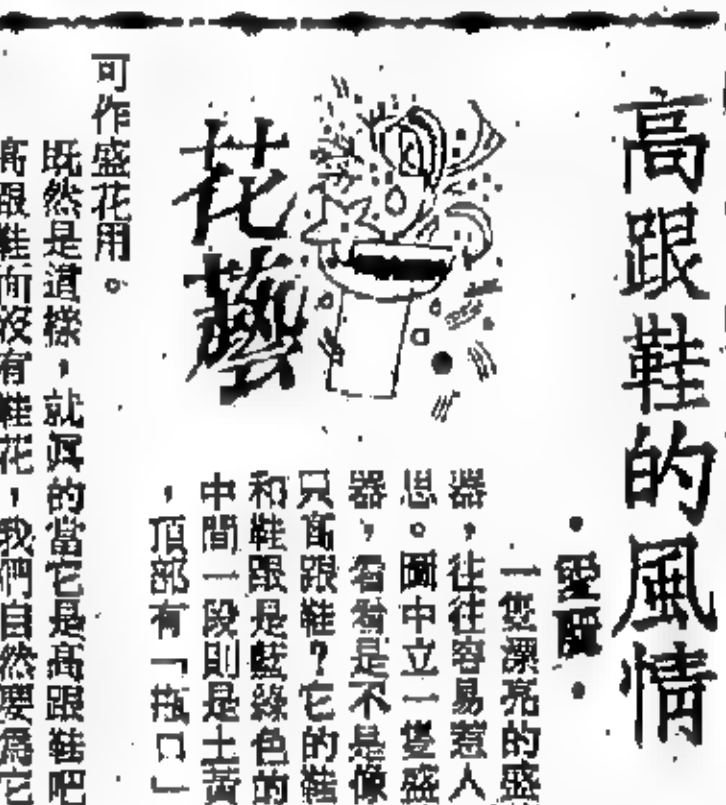 高跟鞋的風情
花藝
一隻漂亮的盛
器，往往容易惹人
思。圖中立一隻盛
器，看看是不是像
只高跟鞋？它的鞋
和鞋跟是藍綠色的
中間一段則是土黃
，頂部有「瓶口」
可作盛花用。
既然是這樣，就眞的當它是高跟鞋吧
高跟鞋而沒有鞋花，我們自然要爲它